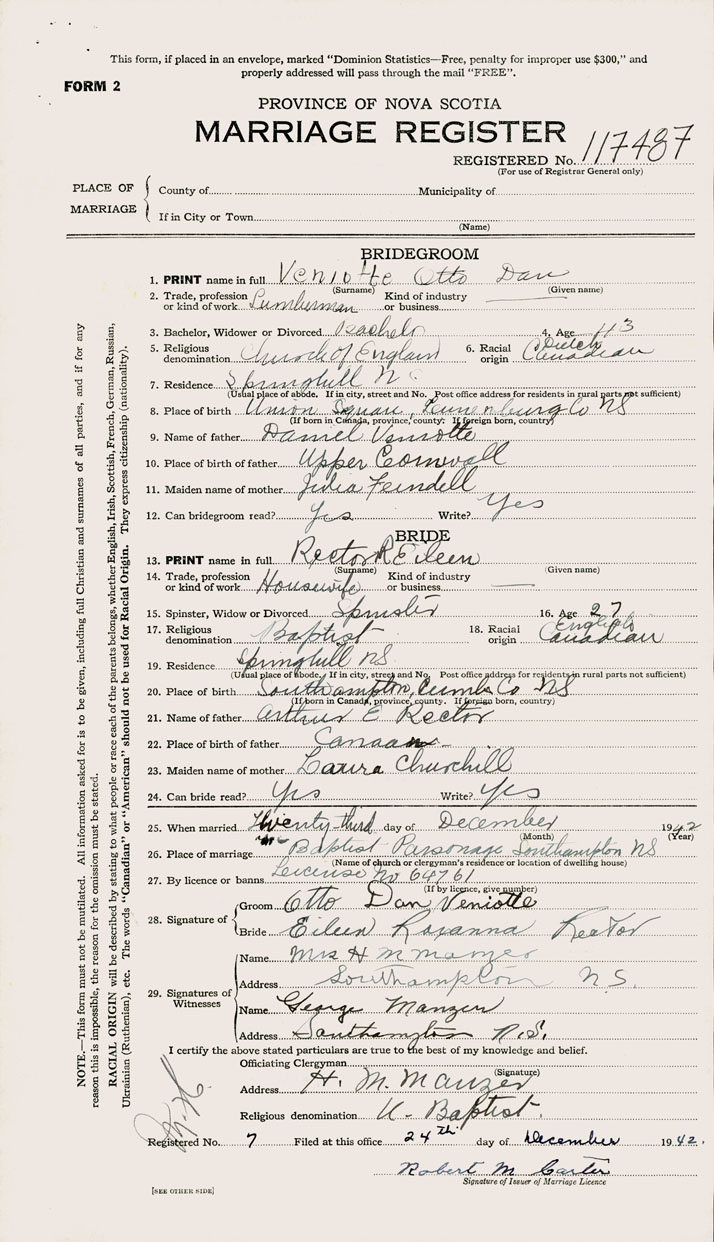 This form, if placed in an envelope, marked "Dominion Statistics—Free, penalty for improper use $300," and
properly addressed will pass through the mail "FREE".
FORM 2
PROVINCE OF NOVA SCOTIA
MARRIAGE REGISTER
REGISTERED No. 117487
(For use of Registrar General only)
PLACE OF MARRIAGE
County of Municipality of
If in City or Town
(Name)
BRIDEGROOM
1. PRINT name in full Veniotte Otto Dan
(Surname) (Given name)
2. Trade, profession or kind of work Lumberman Kind of industry or business
3. Bachelor, Widower or Divorced Bachelor 4. Age 43
5. Religious denomination Church of England 6. Racial origin Dutch Canadian
7. Residence Springhill N S
(Usual place of abode. If in city, street and No. Post office address for residents in rural parts not sufficient)
8. Place of birth Union Square, Lunenburg Co NS
(If born in Canada, province, county. If foreign born, country)
9. Name of father Daniel Veniotte
10. Place of birth of father Upper Cornwall
11. Maiden name of mother Julia Feindell
12. Can bridegroom read? Yes Write? Yes
BRIDE
13. PRINT name in full Rector R Eileen
(Surname) (Given name)
14. Trade, profession or kind of work Housewife Kind of industry or business
15. Spinster, Widow or Divorced Spinster 16. Age 27
17. Religious denomination Baptist 18. Racial origin English Canadian
19. Residence Springhill NS
(Usual place of abode. If in city, street and No. Post office address for residents in rural parts not sufficient)
20. Place of birth Southampton, Cumb. Co NS
(If born in Canada, province, county. If foreign born, country)
21. Name of father Arthur E Rector
22. Place of birth of father Canaan
23. Maiden name of mother Laura Churchill
24. Can bride read? Yes Write? Yes
25. When married Twenty third day of December 1942
(Month) (Year)
26. Place of marriage Baptist Parsonage Southampton NS
(Name of church or clergyman's residence or location of dwelling house)
27. By licence or banns License No 64761
(If by licence, give number)
28. Signature of
Groom Otto Dan Veniotte
Bride Eileen Roxanna Rector
29. Signatures of Witnesses
Name Mrs H M Manzer
Address Southampton N.S.
Name George Manzer
Address Southampton N.S.
I certify the above stated particulars are true to the best of my knowledge and belief.
Officiating Clergyman H. M. Manzer
(Signature)
Address
Religious denomination U. Baptist.
Registered No. 7 Filed at this office 24th day of December 1942.
Robert M Carter
Signature of Issuer of Marriage Licence
[SEE OTHER SIDE]
NOTE.—This form must not be mutilated. All information asked for is to be given, including full Christian and surnames of all parties, and if for any
reason this is impossible, the reason for the omission must be stated.
RACIAL ORIGIN will be described by stating to what people or race each of the parents belongs, whether English, Irish, Scottish, French, German, Russian,
Ukrainian (Ruthenian), etc. The words "Canadian" or "American" should not be used for Racial Origin. They express citizenship (nationality).